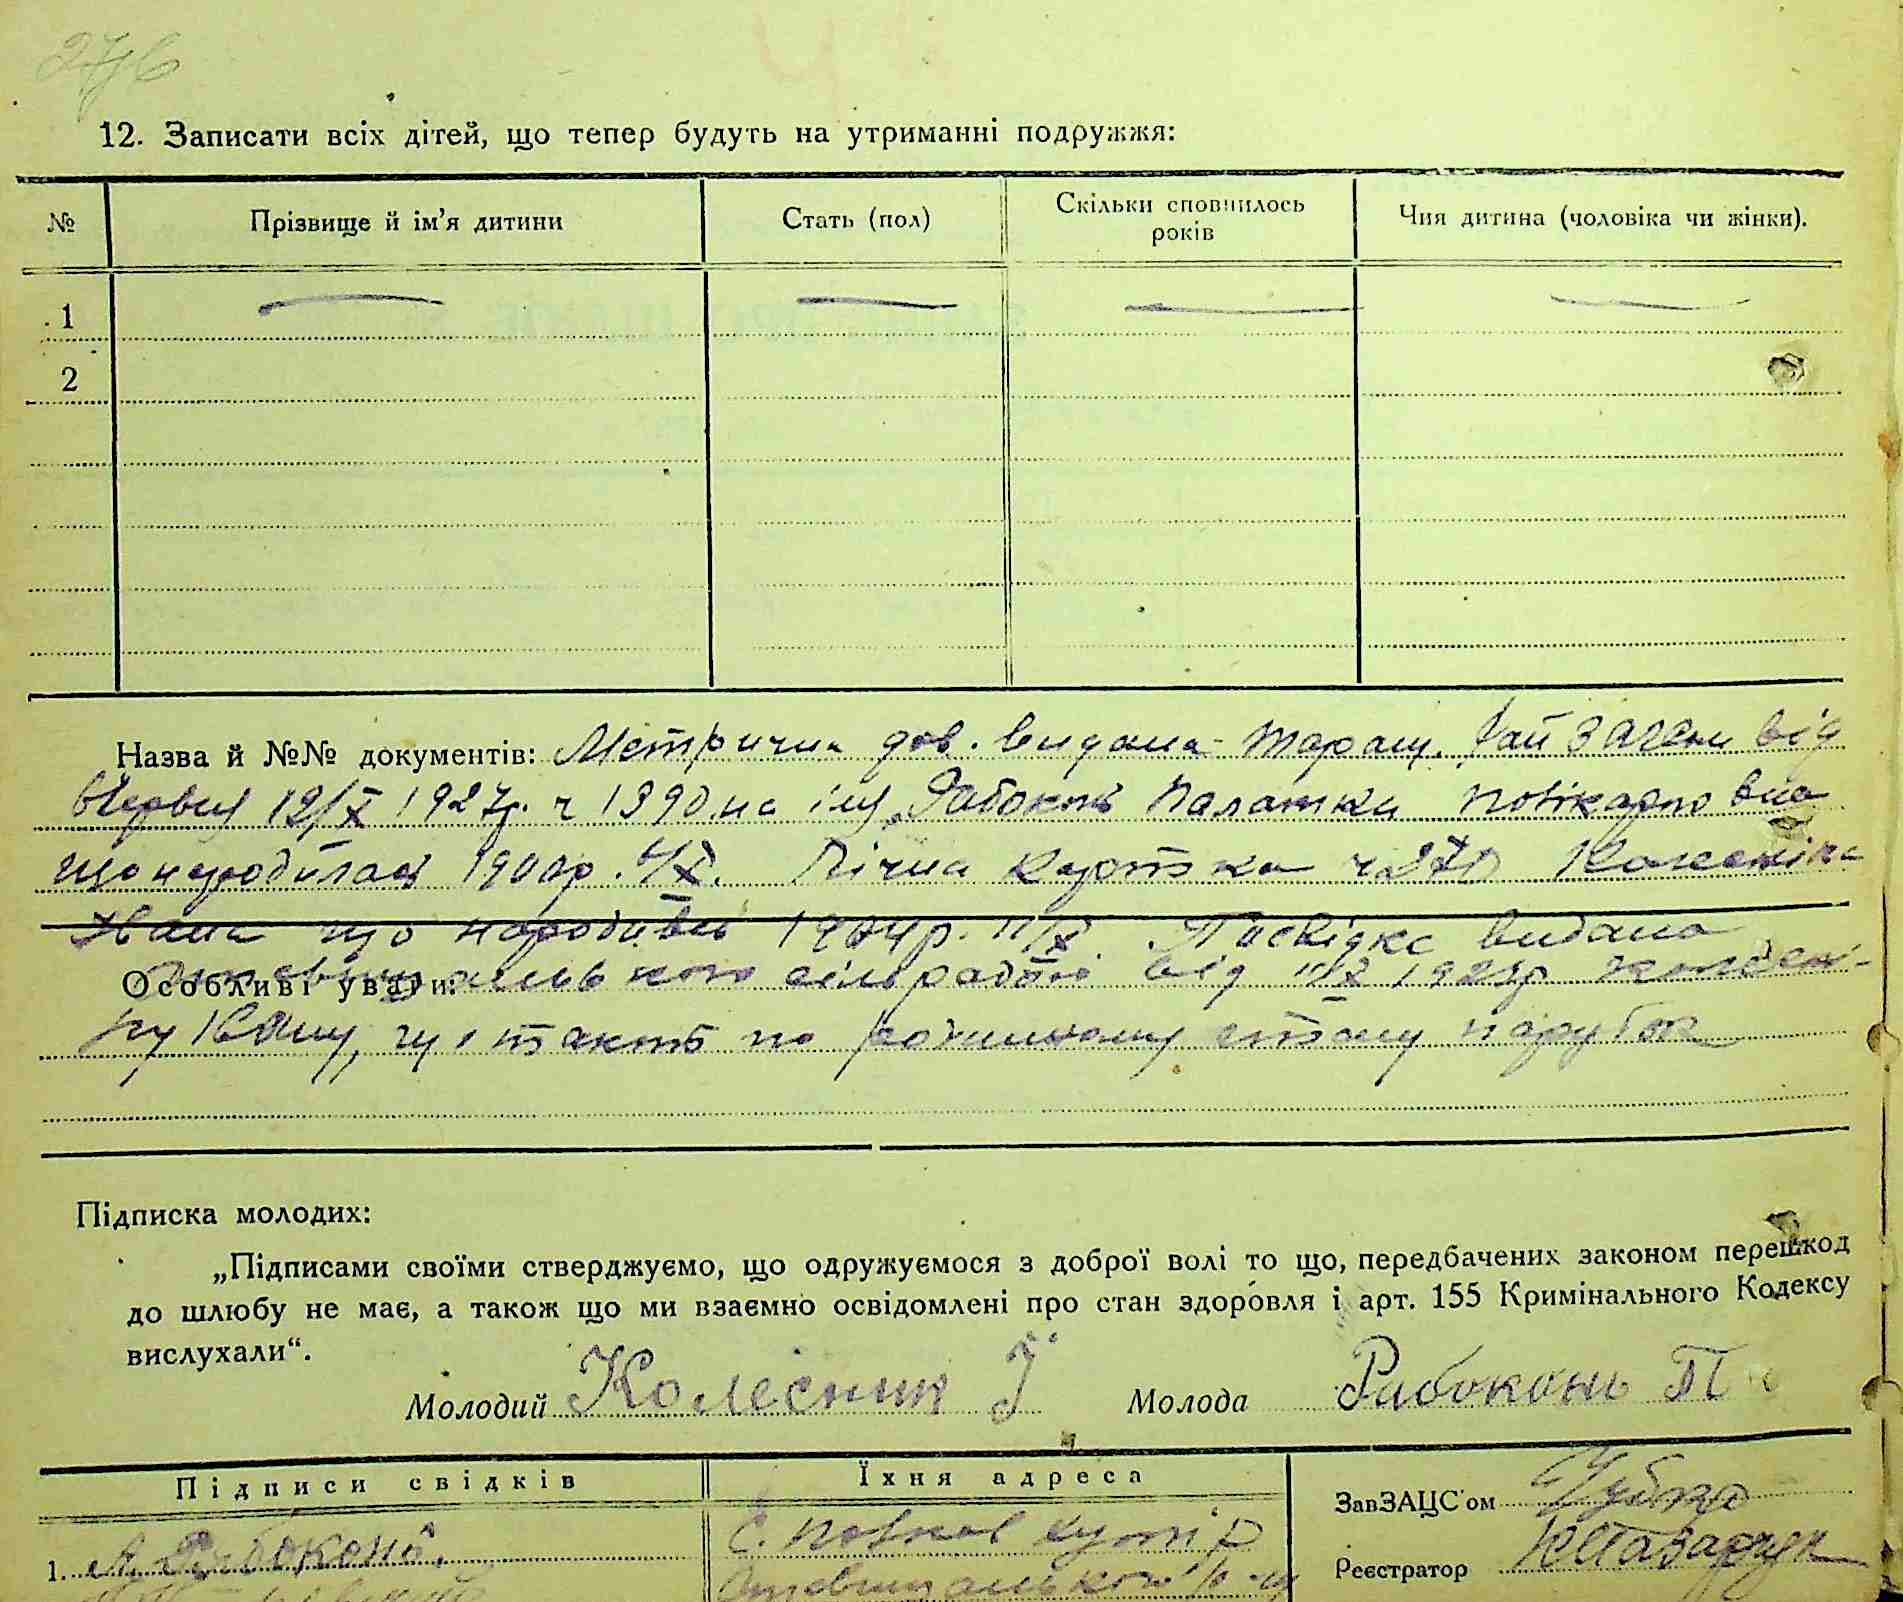 276
12. Записати всіх дітей, що тепер будуть на утриманні подружжя:
№ Прізвище й ім’я дитини Стать (пол) Скільки сповнилось років Чия дитина (чоловіка чи жінки).
1
2
Назва й №№ документів: Метрична дов. видана Таращ. Рай ЗАГСом від
12/X 1927р. ч 1390 на ім. Рабоконь Палажки Полікарповна
що народилась 1900р. /X. Лічна картка ч 270 Колесніка
Івана що народився 1904р. 11/X. Посвідка видана
Особливі уваги: сільрадою від 11/X 1927р Колесні-
ку Івану, по родинному стану парубок
Підписка молодих:
„Підписами своїми стверджуємо, що одружуємося з доброї волі то що, передбачених законом перешкод
до шлюбу не має, а також що ми взаємно освідомлені про стан здоровля і арт. 155 Кримінального Кодексу
вислухали“.
Молодий Колесник І Молода Рабоконь П
Підписи свідків Їхня адреса
ЗавЗАЦС’ом
1. А. Рабоконь. С. хутір
Реєстратор